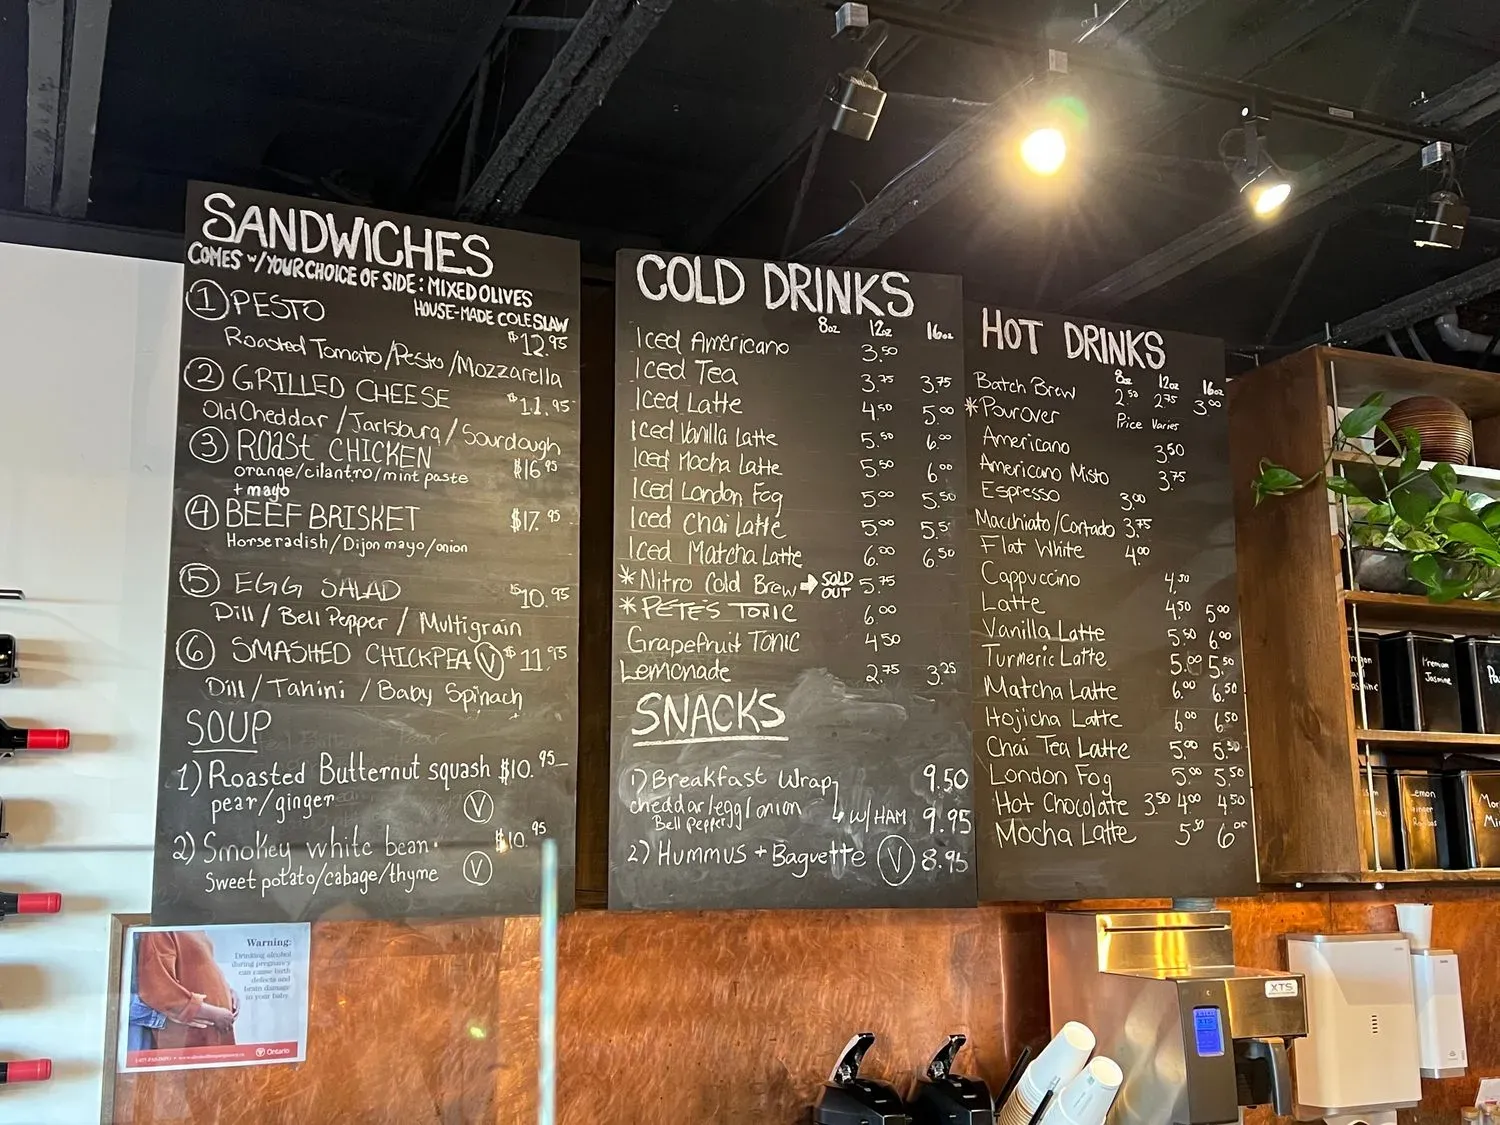 SANDWICHES
COMES W/YOUR CHOICE OF SIDE: MIXED OLIVES
HOUSE-MADE COLESLAW
1 PESTO $12.95
Roasted Tomato/Pesto/Mozzarella
2 GRILLED CHEESE $11.95
Old Cheddar/Jarlsburg/Sourdough
3 ROAST CHICKEN $16.95
orange/cilantro/mint paste
+ mayo
4 BEEF BRISKET $17.95
Horseradish/Dijon mayo/onion
5 EGG SALAD $10.95
Dill/Bell Pepper/Multigrain
6 SMASHED CHICKPEA V $11.95
Dill/Tahini/Baby Spinach
SOUP
1) Roasted Butternut squash $10.95
pear/ginger V
2) Smokey white bean. $10.95
Sweet potato/cabage/thyme V
COLD DRINKS
8oz 12oz 16oz
Iced Americano 3.50
Iced Tea 3.75 3.75
Iced Latte 4.50 5.00
Iced Vanilla Latte 5.50 6.00
Iced Mocha Latte 5.50 6.00
Iced London Fog 5.00 5.50
Iced Chai Latte 5.00 5.5
Iced Matcha Latte 6.00 6.50
*Nitro Cold Brew → SOLD OUT 5.75
*PETE'S TONIC 6.00
Grapefruit TONIC 4.50
Lemonade 2.75 3.25
SNACKS
1) Breakfast Wrap 9.50
cheddar/egg/onion
Bell Pepper
↳ W/HAM 9.95
2) HUMMUS + Baguette V 8.95
HOT DRINKS
8oz 12oz 16oz
Batch Brew 2.50 2.75 3.00
*Pourover Price Varies
Americano 3.50
Americano Misto 3.75
Espresso 3.00
Macchiato/Cortado 3.75
Flat White 4.00
Cappuccino 4.50
Latte 4.50 5.00
Vanilla Latte 5.50 6.00
Turmeric Latte 5.00 5.50
Matcha Latte 6.00 6.50
Hojicha Latte 6.00 6.50
Chai Tea Latte 5.00 5.50
London Fog 5.00 5.50
Hot Chocolate 3.50 4.00 4.50
Mocha Latte 5.50 6.00
Premium
Jasmine
Lemon
Ginger
Rooibos
Warning:
Drinking alcohol
during pregnancy
can cause birth
defects and
brain damage
to your baby.
Ontario
XTS